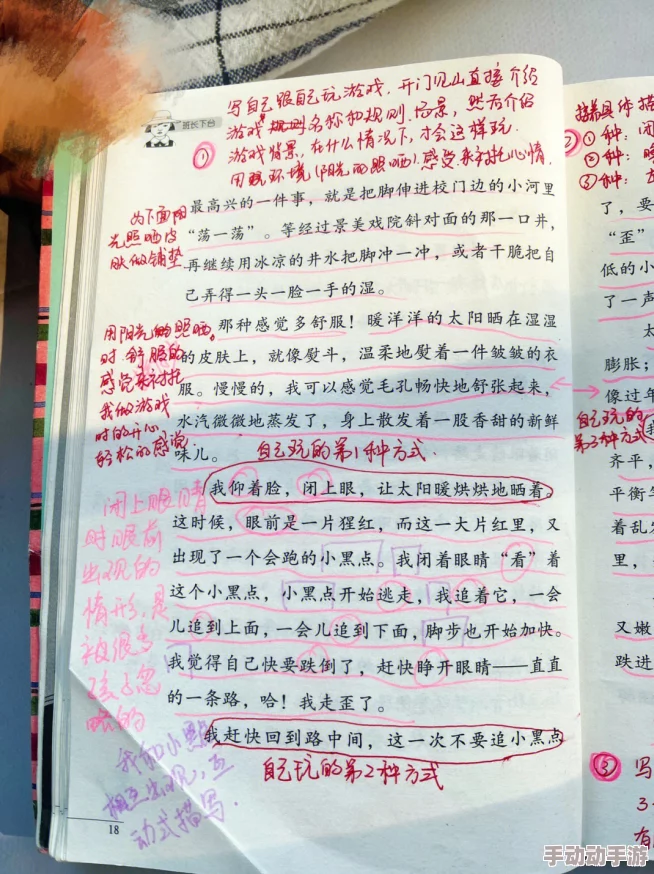 写自己跟自己玩游戏．开门见山直接介绍
游戏名称和规则、场景，然后介绍
游戏背景，在什么情况下，才会这样玩．
用现环境(阳光的照晒)感觉来衬托心情．
①
班长下台
最高兴的一件事，就是把脚伸进校门边的小河里
“荡一荡”。等经过景美戏院斜对面的那一口井，
再继续用冰凉的井水把脚冲一冲，或者干脆把自
己弄得一头一脸一手的湿。
那种感觉多舒服！暖洋洋的太阳晒在湿湿
的皮肤上，就像熨斗，温柔地熨着一件皱皱的衣
服。慢慢的，我可以感觉毛孔畅快地舒张起来，
水汽微微地蒸发了，身上散发着一股香甜的新鲜
味儿。
自己玩的第1种方式．
我仰着脸，闭上眼，让太阳暖烘烘地晒着。
这时候，眼前是一片猩红，而这一大片红里，又
出现了一个会跑的小黑点。我闭着眼睛“看”着
这个小黑点，小黑点开始逃走，我追着它，一会
儿追到上面，一会儿追到下面，脚步也开始加快。
我觉得自己快要跌倒了，赶快睁开眼睛——直直
的一条路，哈！我走歪了。
我赶快回到路中间，这一次不要追小黑点
自己玩的第2种方式
18
为下面阳
光照晒皮
肤做铺垫
用阳光的照晒
时舒服的
感觉来衬托
我做游戏
时的开心，
轻松的感觉．
闭上眼睛
时眼前
出现的
情形，是
被很多
孩子忽
略的
我和小黑点
相互出现，互
动式描写．
②
①种：
②种：
③种：
了，要
“歪”
低的小
了一声
膨胀；
像过年
自己玩的
第3种方式
我
齐平，
平衡
着乱
里，
又嫩
跌进
③写
3
有
手动动手游